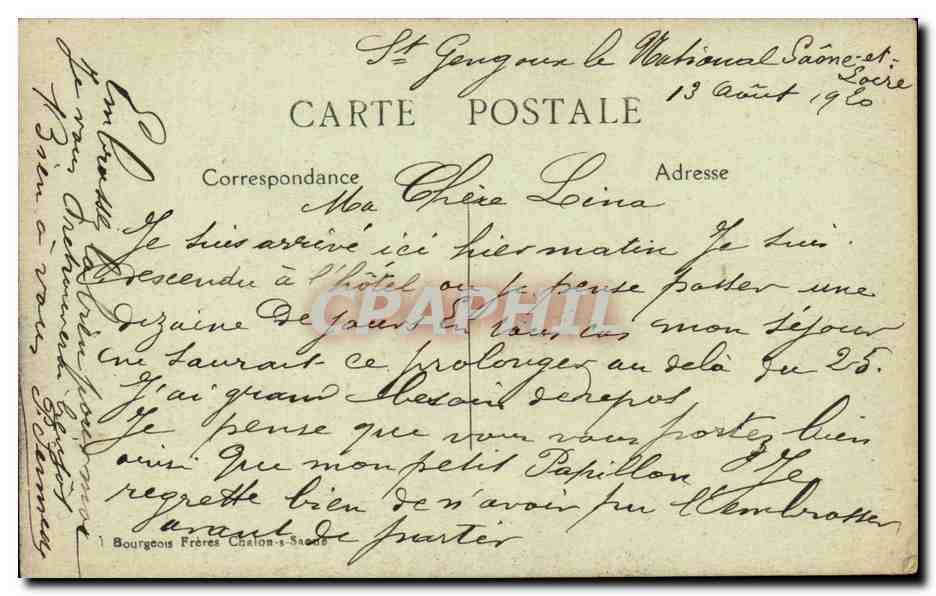 St Gengoux le National Saône-et-
Loire
13 Août 1920
CARTE POSTALE
Correspondance
Adresse
Ma Chère Lina
Je suis arrivé ici hier matin Je suis
descendu à l'hôtel ou je pense passer une
dizaine de jours En tous cas mon séjour
ne saurait ce prolonger au delà du 25.
J'ai grand besoin de repos
Je pense que vous vous portez bien
ainsi que mon petit Papillon Je
regrette bien de n'avoir pu l'embrasser
avant de partir
Embrasse la bien pour moi
Je vous retrouverai bientôt
Bien à vous
1 Bourgeois Frères Chalon-s-Saone
CPAPHIL